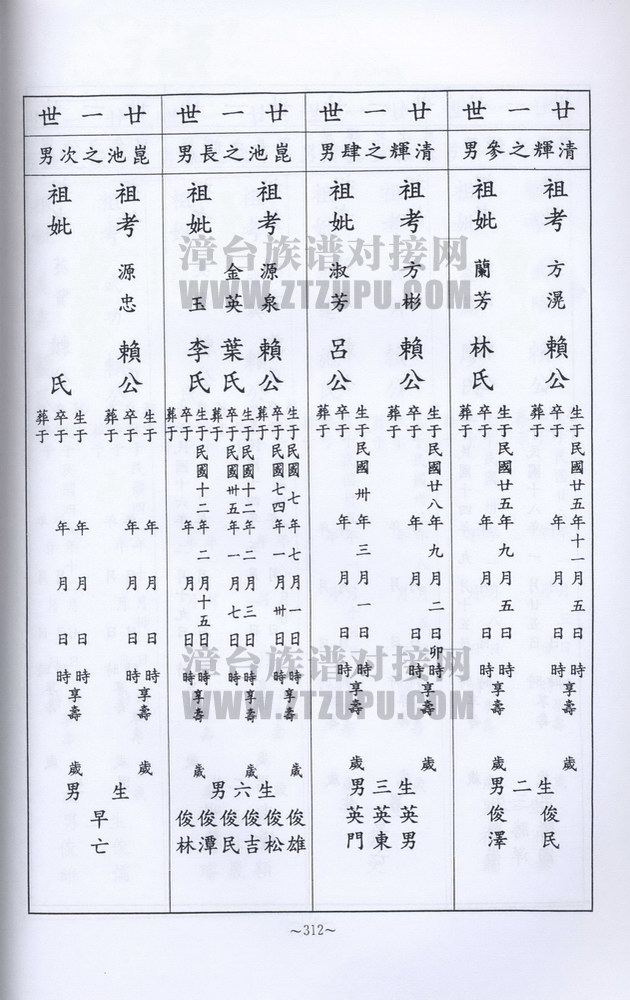 廿一世
清輝之參男
祖考 方滉 賴公
生于民國廿五年十一月五日時
卒于 年 月 日 時享壽 歲
葬于
祖妣 蘭芳 林氏
生于民國廿五年九月五日時
卒于 年 月 日 時享壽 歲
葬于
生二男
俊民
俊澤
廿一世
清輝之肆男
祖考 方彬 賴公
生于民國廿八年九月二日卯時
卒于 年 月 日 時享壽 歲
葬于
祖妣 淑芳 呂公
生于民國卅年三月一日時
卒于 年 月 日 時享壽 歲
葬于
生三男
英男
英東
英門
廿一世
崑池之長男
祖考 源泉 賴公
生于民國七年七月一日時
卒于民國七四年一月卅日時享壽 歲
葬于
祖妣
金英 葉氏
生于民國十二年二月三日時
卒于民國卅五年一月七日時享壽 歲
葬于
玉 李氏
生于民國十二年二月十五日時
卒于 時享壽 歲
葬于
生六男
俊雄
俊松
俊吉
俊民
俊潭
俊林
廿一世
崑池之次男
祖考 源忠 賴公
生于 年 月 日 時
卒于 年 月 日 時享壽 歲
葬于
祖妣 氏
生于 年 月 日 時
卒于 年 月 日 時享壽 歲
葬于
生 男
早亡
~312~
漳台族谱对接网
WWW.ZTZUPU.COM
漳台族谱对接网
WWW.ZTZUPU.COM